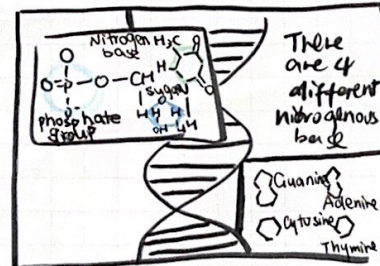 Nitrogen
base
H₃C
O
H
O
O
O-P-O
CH
sugar
N
O
H H H
OH H
phosphate
group
There
are 4
different
nitrogenous
base
Guanine
Adenine
Cytosine
Thymine